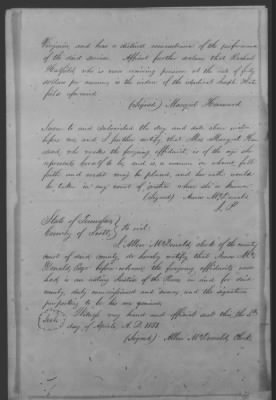 Virginia, and has a distinct recollection of the performance
of the said service. Affiant further certifies that Rachael
Hatfield who is now receiving pension at the rate of forty
dollars per annum is the widow of the identical Joseph Hat-
field aforesaid.
(Signed) Margret Hammord
Sworn to and subscribed the day and date above written
before me, and I further certify that Mrs Margret Ham-
mord, who makes the foregoing affidavit, is of the age she
represents herself to be and is a woman in whose full
faith and credit may be placed, and her oath would
be taken in any court of justice where she is known.
(Signed) Anne McDonald
J. P.
State of Tennessee }
County of Scott } To wit:
I Allen McDonald, clerk of the county
court of said county, do hereby certify that Anne Mc-
Donald, Esqr before whom the foregoing affidavits were
had is an acting Justice of the Peace in and for said
county, duly commissioned and sworn and the signature
purporting to be his are genuine.
Seal Witness my hand and official seal this the 5th
day of April A. D. 1851.
(Signed) Allen McDonald, Clerk